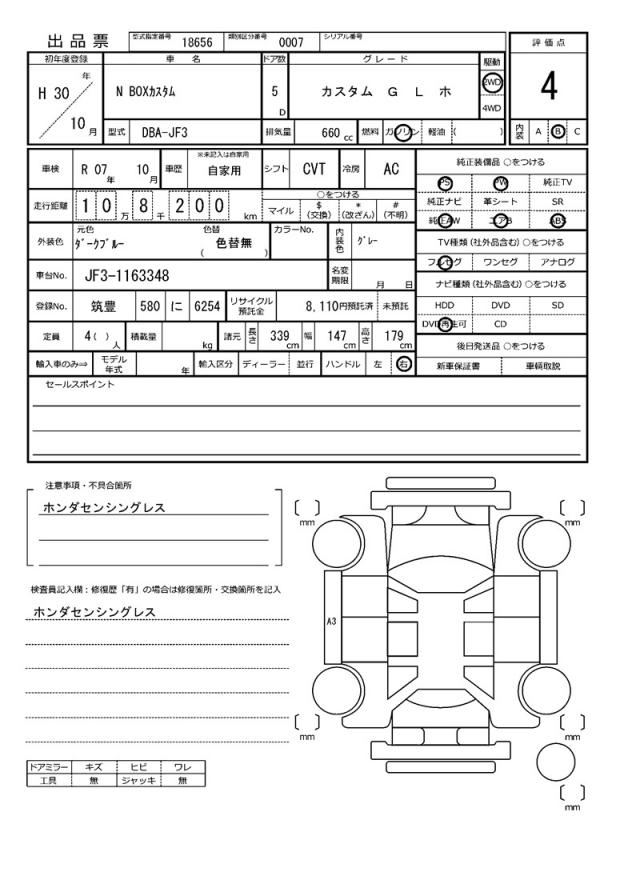 出品票
型式指定番号 18656 類別区分番号 0007 シリアル番号
評価点
4
内装 A B C
初年度登録 車名 ドア数 グレード 駆動
H 30 年 10 月
N BOXカスタム 5 D カスタム G L ホ 2WD 4WD
型式 DBA-JF3 排気量 660 cc 燃料 ガソリン 軽油 ( )
車検 R 07 年 10 月 車歴 ※未記入は自家用 自家用 シフト CVT 冷房 AC
走行距離 1 0 万 8 千 2 0 0 km
○をつける
マイル $ (交換) * (改ざん) # (不明)
外装色 元色 ダークブルー 色替 色替無 ( ) カラーNo. 内装色 グレー
車台No. JF3-1163348 名変期限 月 日
登録No. 筑豊 580 に 6254 リサイクル預託金 8,110円預託済 未預託
定員 4( ) 人 積載量 kg 諸元 長さ 339 cm 幅 147 cm 高さ 179 cm
輸入車のみ⇒ モデル年式 年 輸入区分 ディーラー 並行 ハンドル 左 右
純正装備品 ○をつける
PS PW 純正TV
純正ナビ 革シート SR
純正AW エアB ABS
TV種類 (社外品含む) ○をつける
フルセグ ワンセグ アナログ
ナビ種類 (社外品含む) ○をつける
HDD DVD SD
DVD再生可 CD
後日発送品 ○をつける
新車保証書 車輌取説
セールスポイント
注意事項・不具合箇所
ホンダセンシングレス
検査員記入欄：修復歴「有」の場合は修復箇所・交換箇所を記入
ホンダセンシングレス
ドアミラー キズ ヒビ ワレ
工具 無 ジャッキ 無
mm
mm
A3
mm
mm
mm